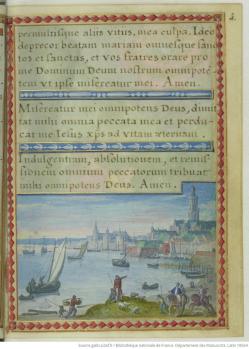 permultisque aliis vitiis, mea culpa. Ideo
deprecor beatam mariam omnesque sanc
tos et sanctas, et vos fratres orare pro
me Dominum Deum nostrum omnipotē
tem vt ipse misereatur mei. Amen.
Misereatur mei omnipotens Deus, dimit
tat mihi omnia peccata mea et perdu
cat me Iesus xp̄s ad vitam æternam.
Indulgentiam, absolutionem, et remis
sionem omnium peccatorum tribuat
mihi omnipotens Deus. Amen.
Source gallica.bnf.fr / Bibliothèque nationale de France. Département des Manuscrits. Latin